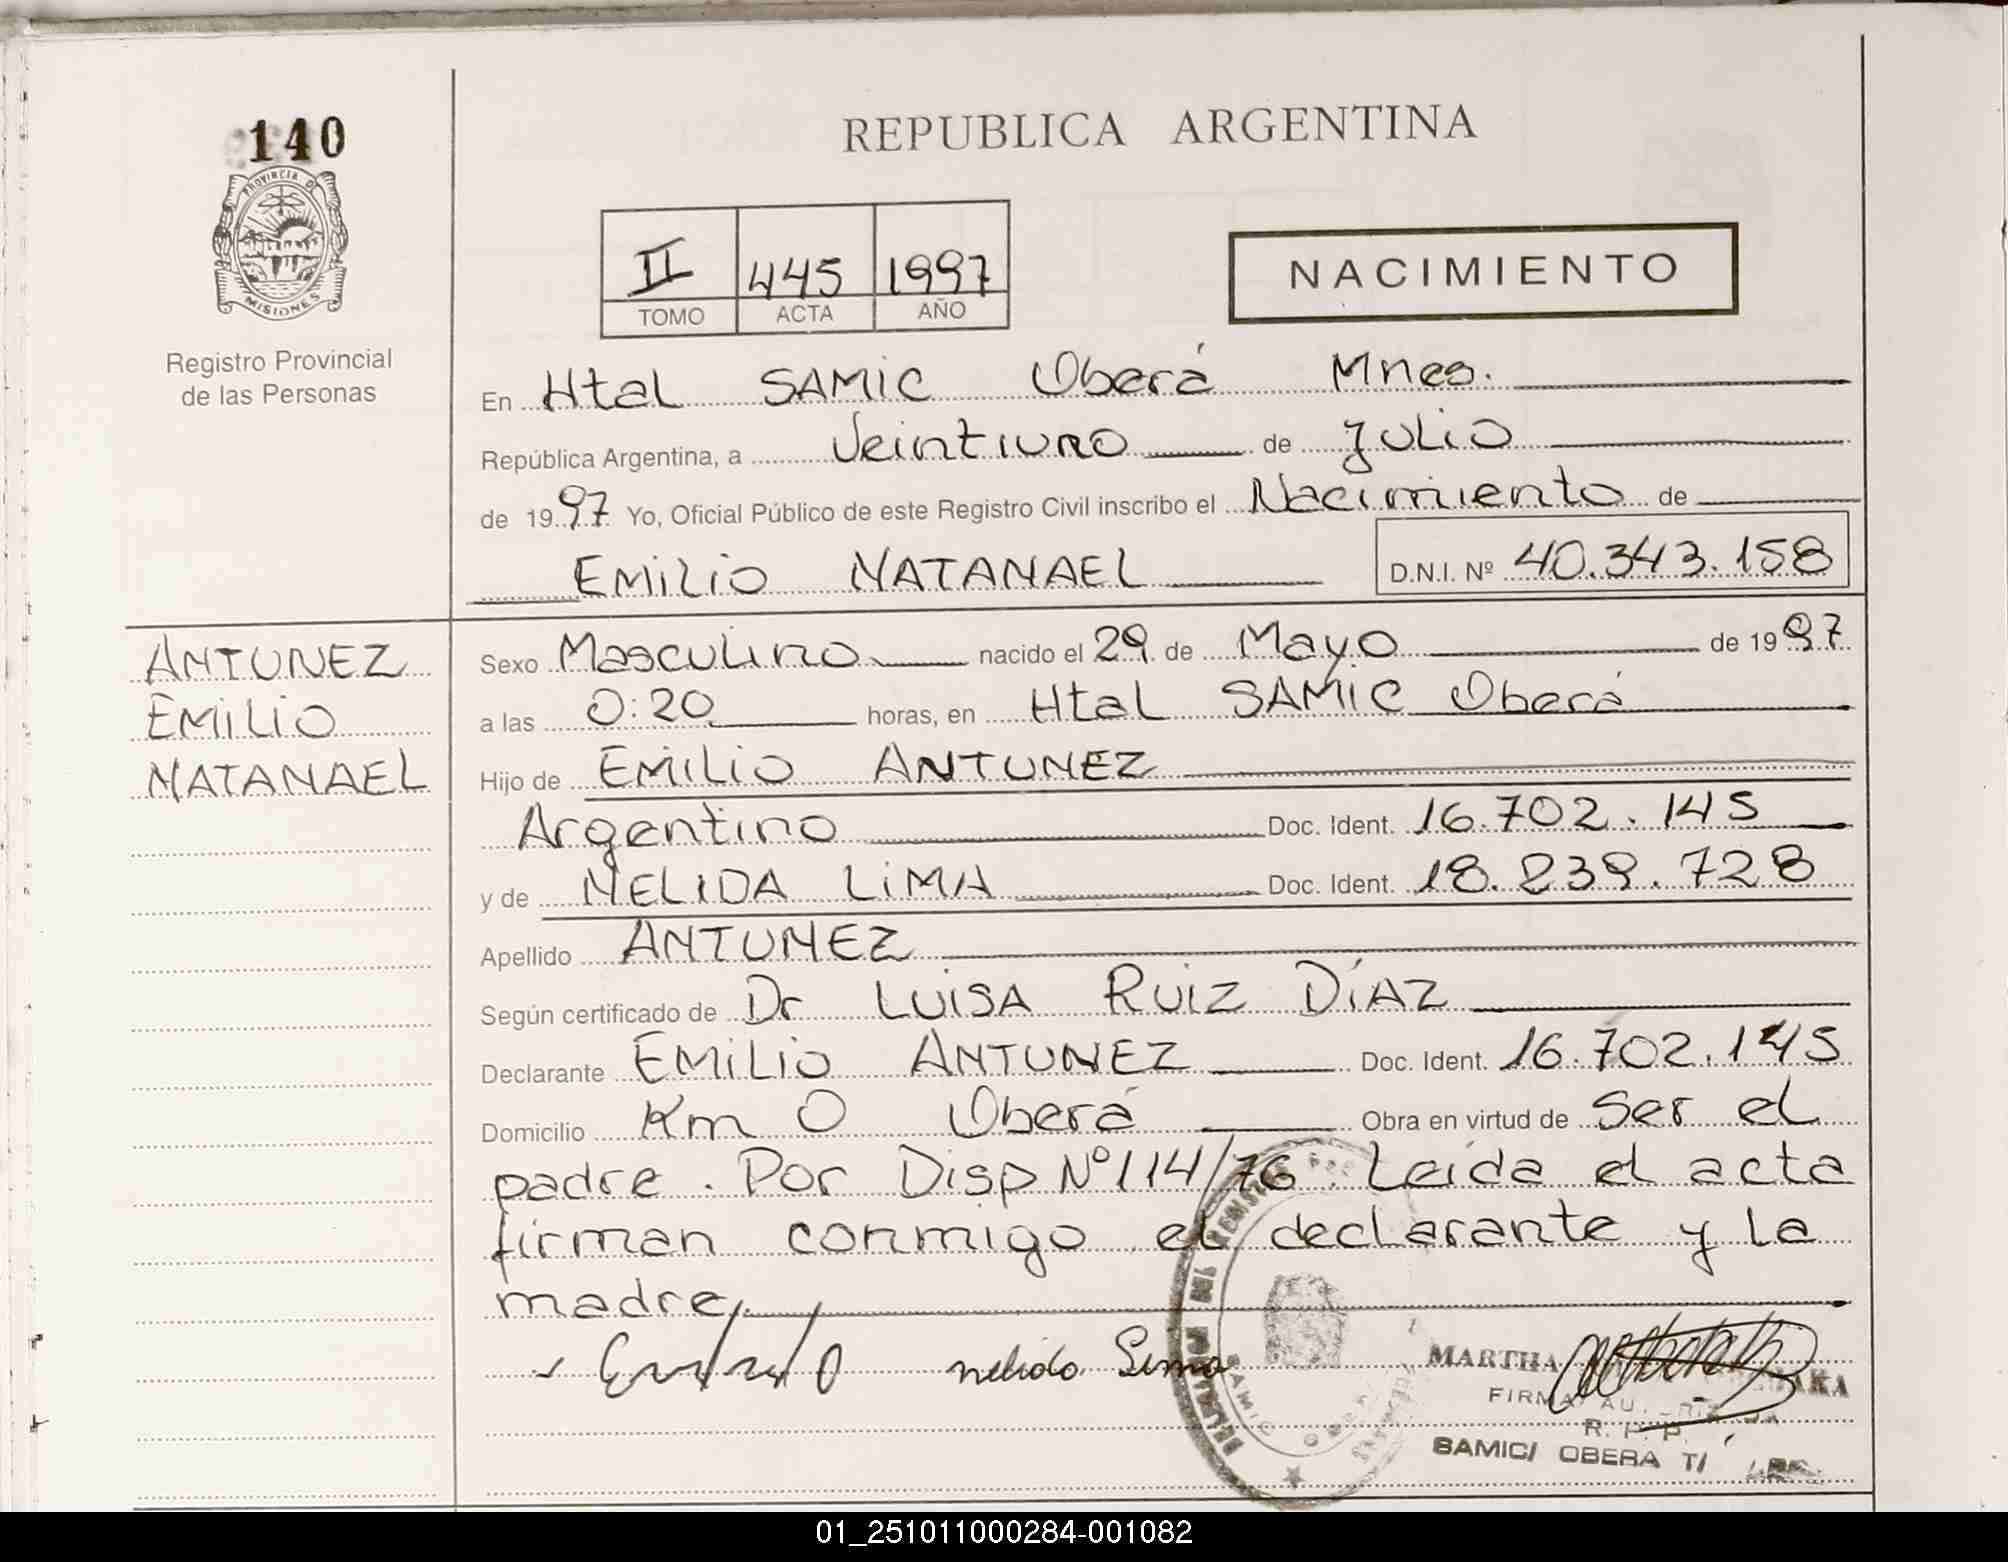 140
PROVINCIA DE
MISIONES
Registro Provincial
de las Personas
REPUBLICA ARGENTINA
II 445 1997
TOMO ACTA AÑO
NACIMIENTO
En Htal SAMIC Oberá Mnes.
República Argentina, a Veintiuno de Julio
de 1997 Yo, Oficial Público de este Registro Civil inscribo el Nacimiento de
EMILIO NATANAEL D.N.I. Nº 40.343.158
ANTUNEZ
EMILIO
NATANAEL
Sexo Masculino nacido el 29 de Mayo de 1997
a las 0:20 horas, en Htal SAMIC Oberá
Hijo de EMILIO ANTUNEZ
Argentino Doc. Ident. 16.702.145
y de NELIDA LIMA Doc. Ident. 18.239.728
Apellido ANTUNEZ
Según certificado de Dr LUISA RUIZ DÍAZ
Declarante EMILIO ANTUNEZ Doc. Ident. 16.702.145
Domicilio Km 0 Oberá Obra en virtud de Ser el
padre. Por Disp Nº 114/76. Leída el acta
firman conmigo el declarante y la
madre
nelida Lima
MARTHA
FIRMA
R. P. P.
SAMIC/ OBERA
SAMIC
01_251011000284-001082